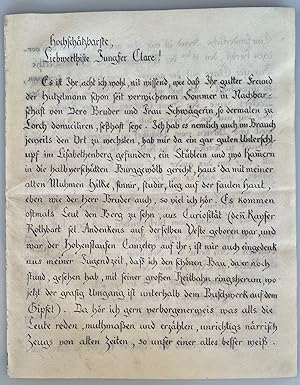 Hochschätzbarste,
Liebwerthiste Jungfer Clare!
Es ist Ihr, acht ich wohl, nit wissend, wie daß Ihr gutter Freund
der Hutzelmann schon seit verwichenem Sommer in Nachbar-
schaft von Dero Bruder und Frau Schwägerin, so dermalen zu
Lorch domiciliren, seßhaft seye. Ich hab es nemlich auch im Brauch
jeweils den Ort zu wechslen, hab mir da ein gar guten Unterschl-
upf im Elisabethenberg gefunden, ein Stüblein und zwo Kamern
in die halbverschütten Burggewölb gericht, haus' da mit meiner
alten Muhmen Hilke, sinnir, studir, lieg auf der faulen Haut,
eben wie der Herr Bruder auch, so viel ich hör. Es kommen
oftmals Leut den Berg zu sehn, aus Curiosität (dei Kayser
Rothbart sel. Andenkens auf derselben Veste geboren war, und
war der Hohenstaufen Cantzley auf ihr; ist mir auch eingedenk
aus meiner Jugendzeil, daß ich den schönen Bau, da er noch
stund, gesehen hab, mit seiner großen Heilbahn ringsherum, wo
jetzt der grasig Umgang ist unterhalb dem Buschwerk auf dem
Gipfel). Da hör ich gern verborgenerweis was als die
Leute reden, muthmaßen und erzählen, unrichtigs närrisch
Zeugs von alten Zeiten, so unser einer alles besser weiß.